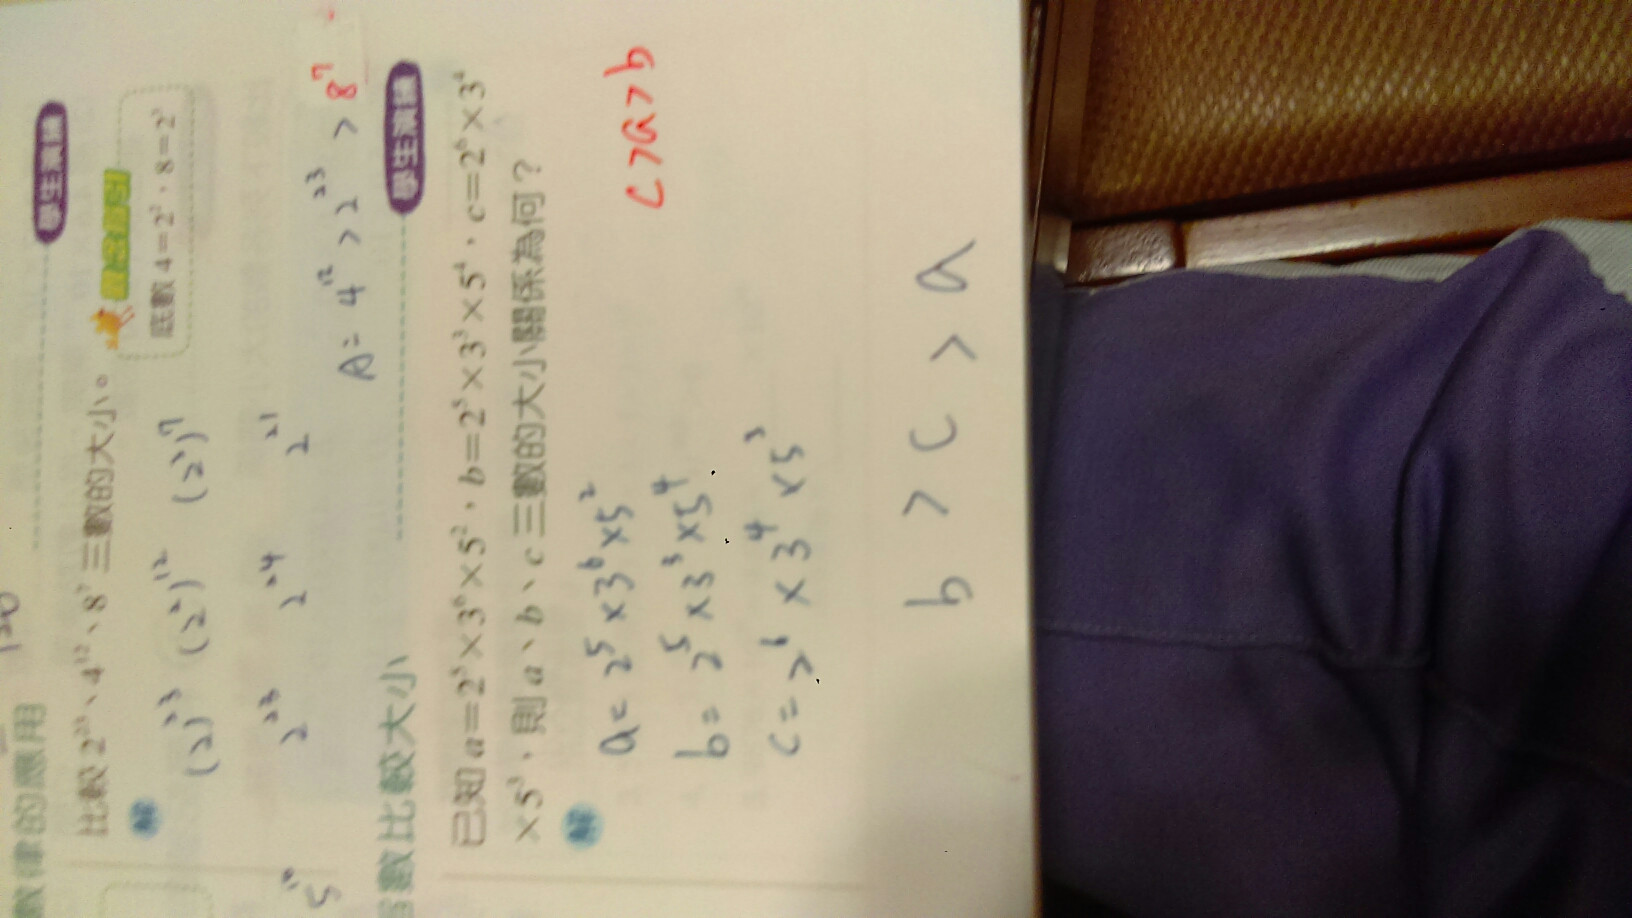 數律的應用
學生演練
比較 2²³、4¹²、8⁷ 三數的大小。
底數 4=2²,8=2³
解
(2)²³ (2²)¹² (2³)⁷
2²³ 2²⁴ 2²¹
A= 4¹² > 2²³ > 8⁷
5¹⁰
數比較大小
學生演練
已知 a=2⁵×3⁶×5²,b=2⁵×3³×5⁴,c=2⁶×3⁴
×5³,則 a、b、c 三數的大小關係為何?
解
a= 2⁵ ×3⁶ ×5²
c>a>b
b= 2⁵ ×3³ ×5⁴
c= 2⁶ ×3⁴ ×5³
b > c > a